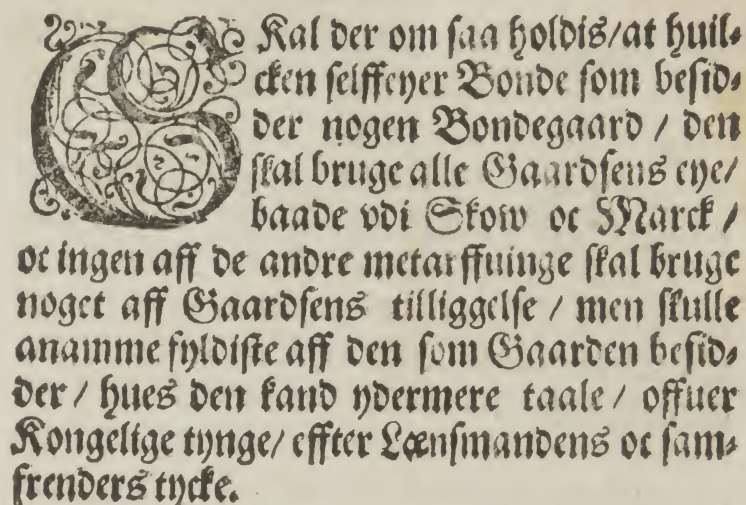 SKal der om saa holdis/at huil-
cken selffeyer Bonde som besid-
der nogen Bondegaard / den
skal bruge alle Gaardsens eye/
baade vdi Skow oc Marck /
oc ingen aff de andre metarffuinge skal bruge
noget aff Gaardsens tilliggelse / men skulle
anamme fyldiste aff den som Gaarden besid-
der / hues den kand ydermere taale / offuer
Kongelige tynge/ effter Lænsmandens oc sam-
frenders tycke.